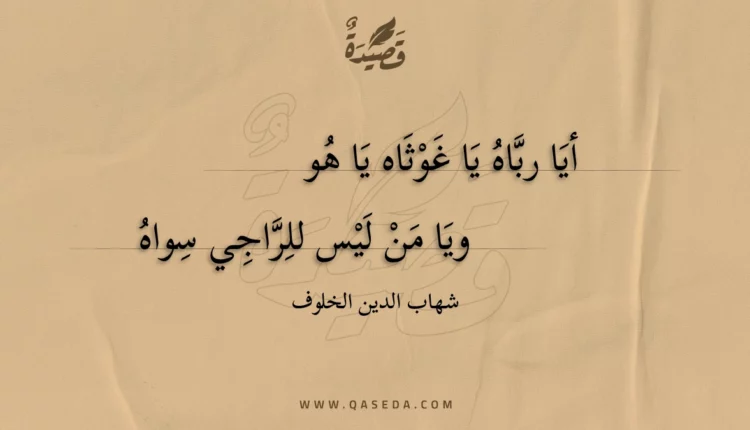 قَصِيْدَةٌ
أيَا ربَّاهُ يَا غَوْثَاه يَا هُو
ويَا مَنْ لَيْس للِرَّاجِي سِواهُ
شهاب الدين الخلوف
WWW.QASEDA.COM